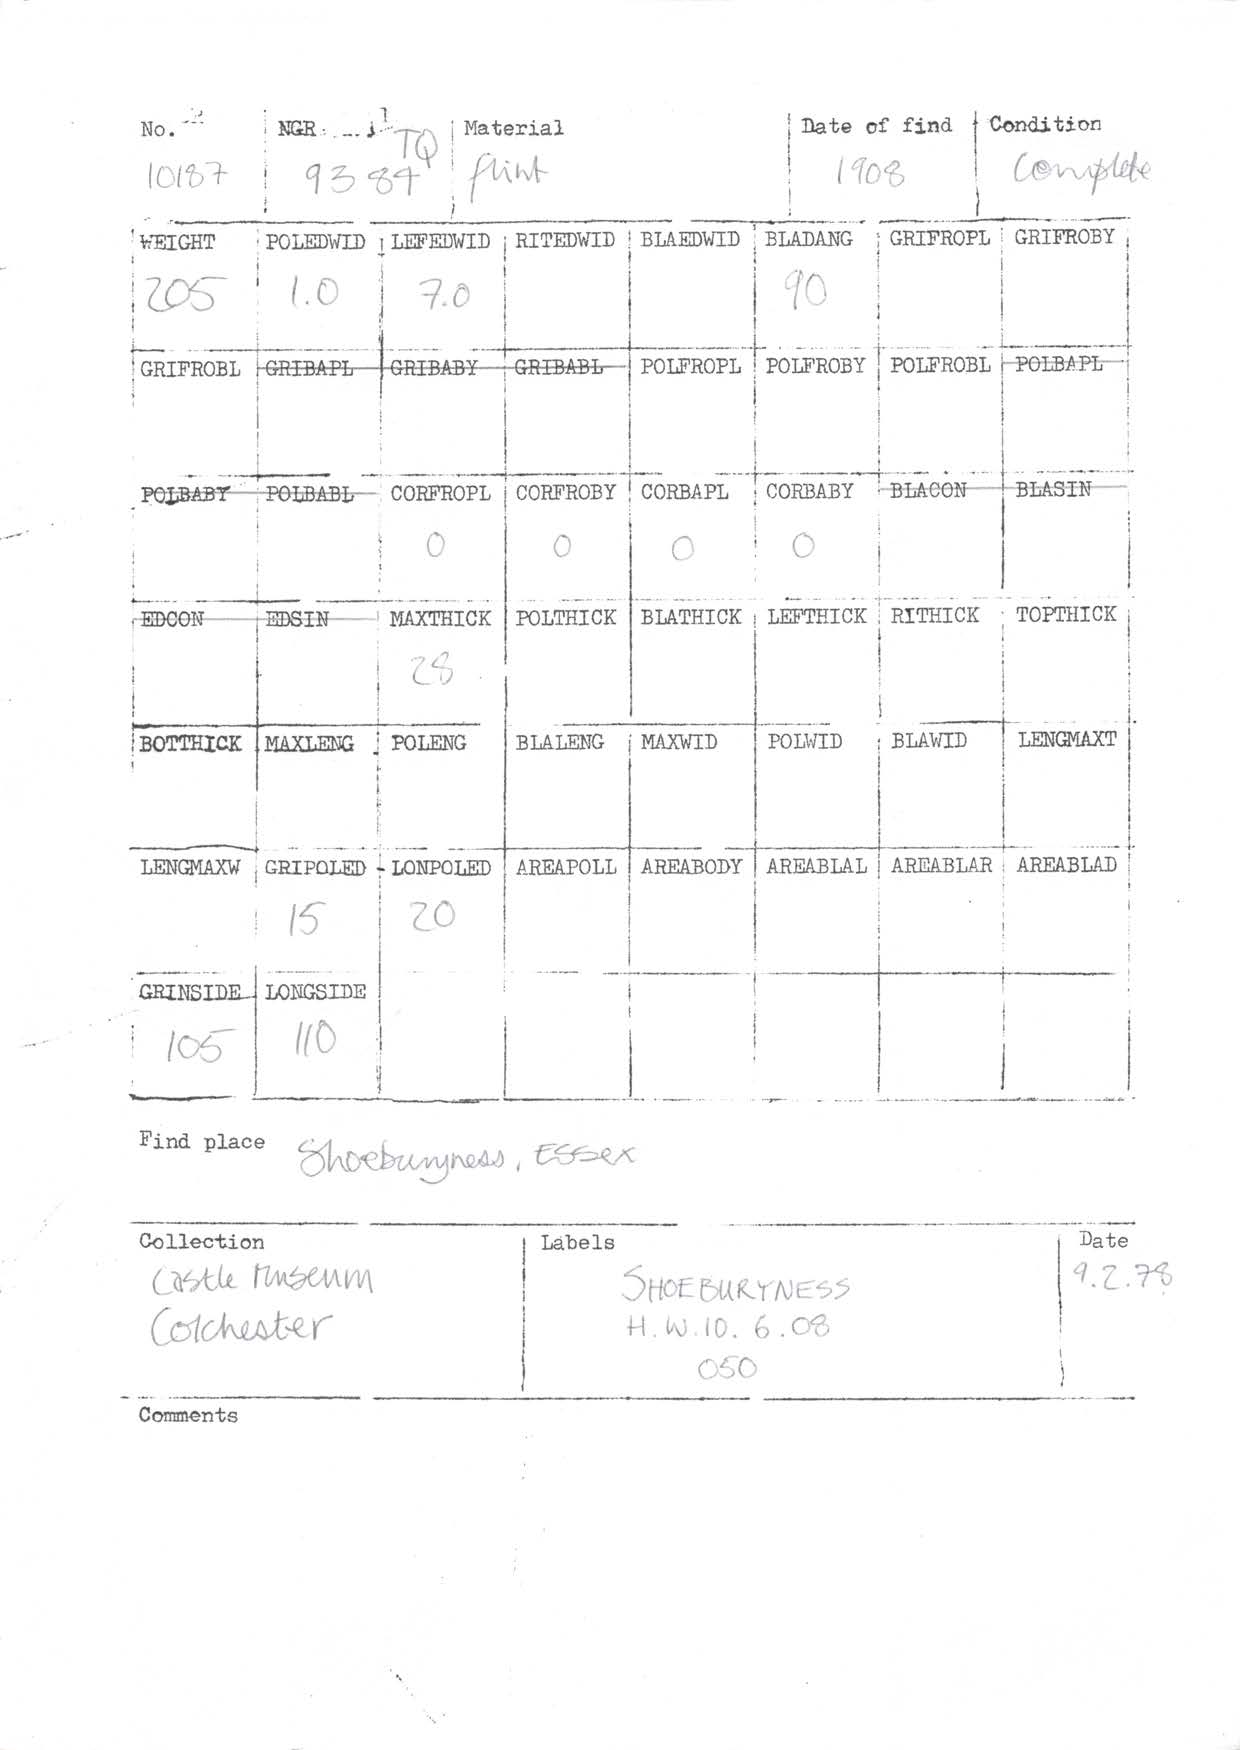 No. NGR Material Date of find Condition
10187 TQ 93 84 flint 1908 Complete
WEIGHT POLEDWID LEFEDWID RITEDWID BLAEDWID BLADANG GRIFROPL GRIFROBY
205 1.0 7.0 90
GRIFROBL GRIBAPL GRIBABY GRIBABL POLFROPL POLFROBY POLFROBL POLBAPL
POLBABY POLBABL CORFROPL CORFROBY CORBAPL CORBABY BLACON BLASIN
0 0 0 0
EDCON EDSIN MAXTHICK POLTHICK BLATHICK LEFTHICK RITHICK TOPTHICK
28
BOTTHICK MAXLENG POLENG BLALENG MAXWID POLWID BLAWID LENGMAXT
LENGMAXW GRIPOLED LONPOLED AREAPOLL AREABODY AREABLAL AREABLAR AREABLAD
15 20
GRINSIDE LONGSIDE
105 110
Find place Shoeburyness, Essex
Collection Labels Date
Castle Museum SHOEBURYNESS 9.2.78
Colchester H.W.10.6.08
050
Comments